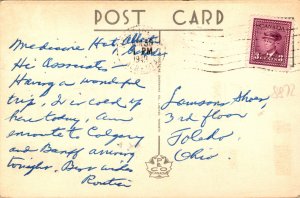 POST CARD
Medicine Hat, Alberta
PM
Hi Associates -
Having a wonderful
trip, It is cold up
here today, Am
enroute to Calgary
and Banff arriving
tonight. Best wishes
Lamsons Shoes,
3rd floor
Toledo,
Ohio